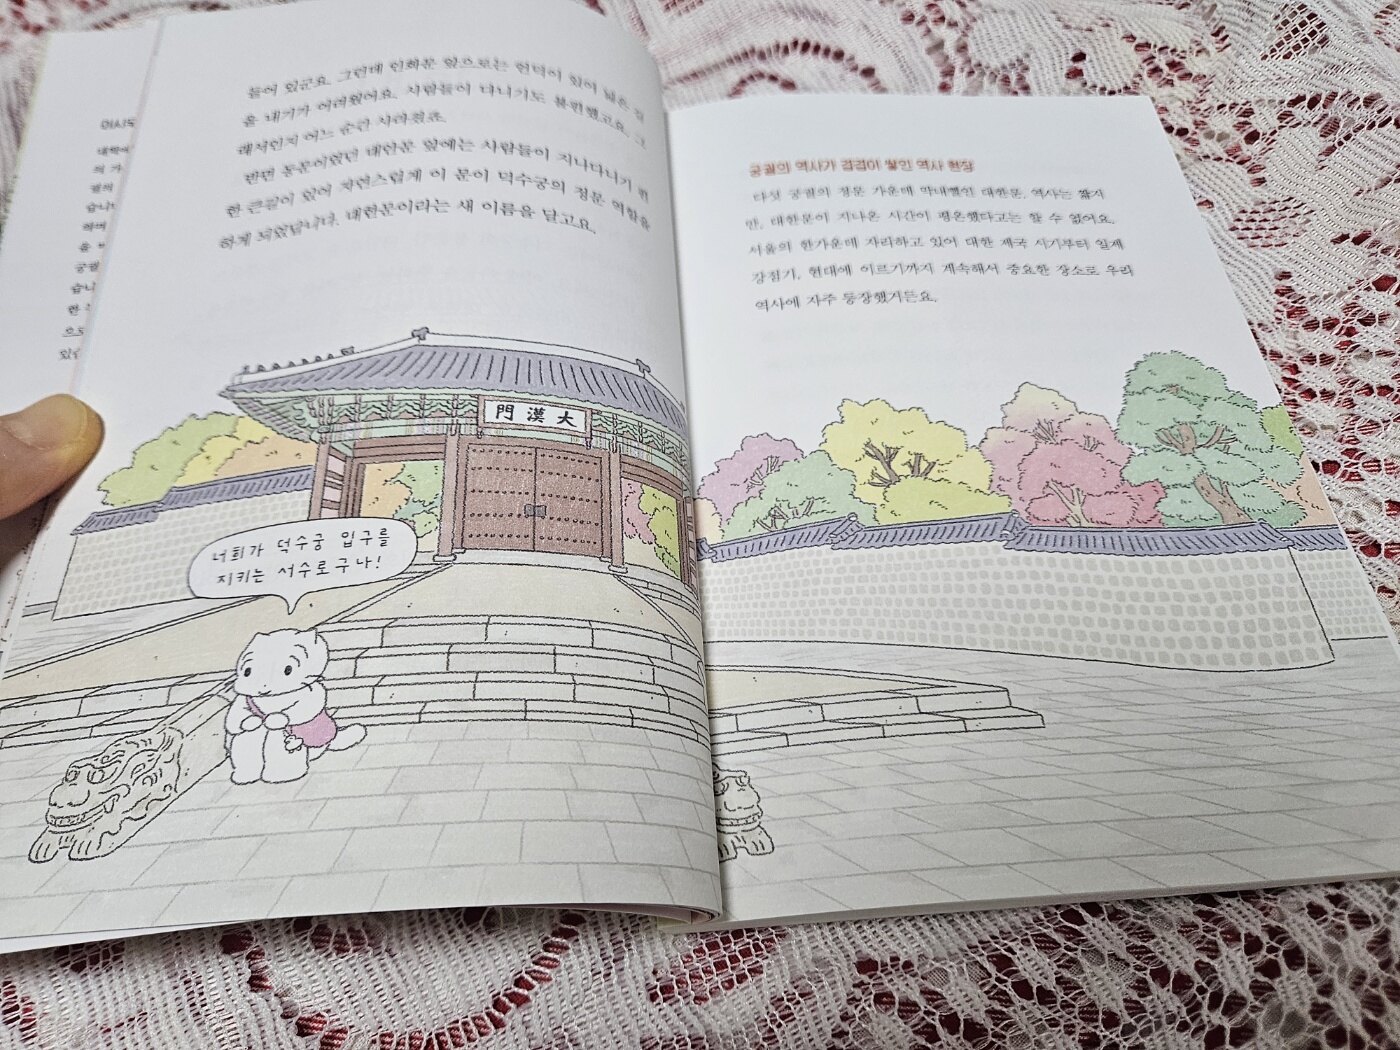 들어 있군요. 그런데 인화문 앞으로는 언덕이 있어 넓은 길
을 내기가 어려웠어요. 사람들이 다니기도 불편했고요. 그
래서인지 어느 순간 사라졌죠.
반면 동문이었던 대안문 앞에는 사람들이 지나다니기 편
한 큰길이 있어 자연스럽게 이 문이 덕수궁의 정문 역할을
하게 되었답니다. 대한문이라는 새 이름을 달고요.
大漢門
너희가 덕수궁 입구를
지키는 서수로구나!
궁궐의 역사가 겹겹이 쌓인 역사 현장
다섯 궁궐의 정문 가운데 막내뻘인 대한문. 역사는 짧지
만, 대한문이 지나온 시간이 평온했다고는 할 수 없어요.
서울의 한가운데 자리하고 있어 대한 제국 시기부터 일제
강점기, 현대에 이르기까지 계속해서 중요한 장소로 우리
역사에 자주 등장했거든요.